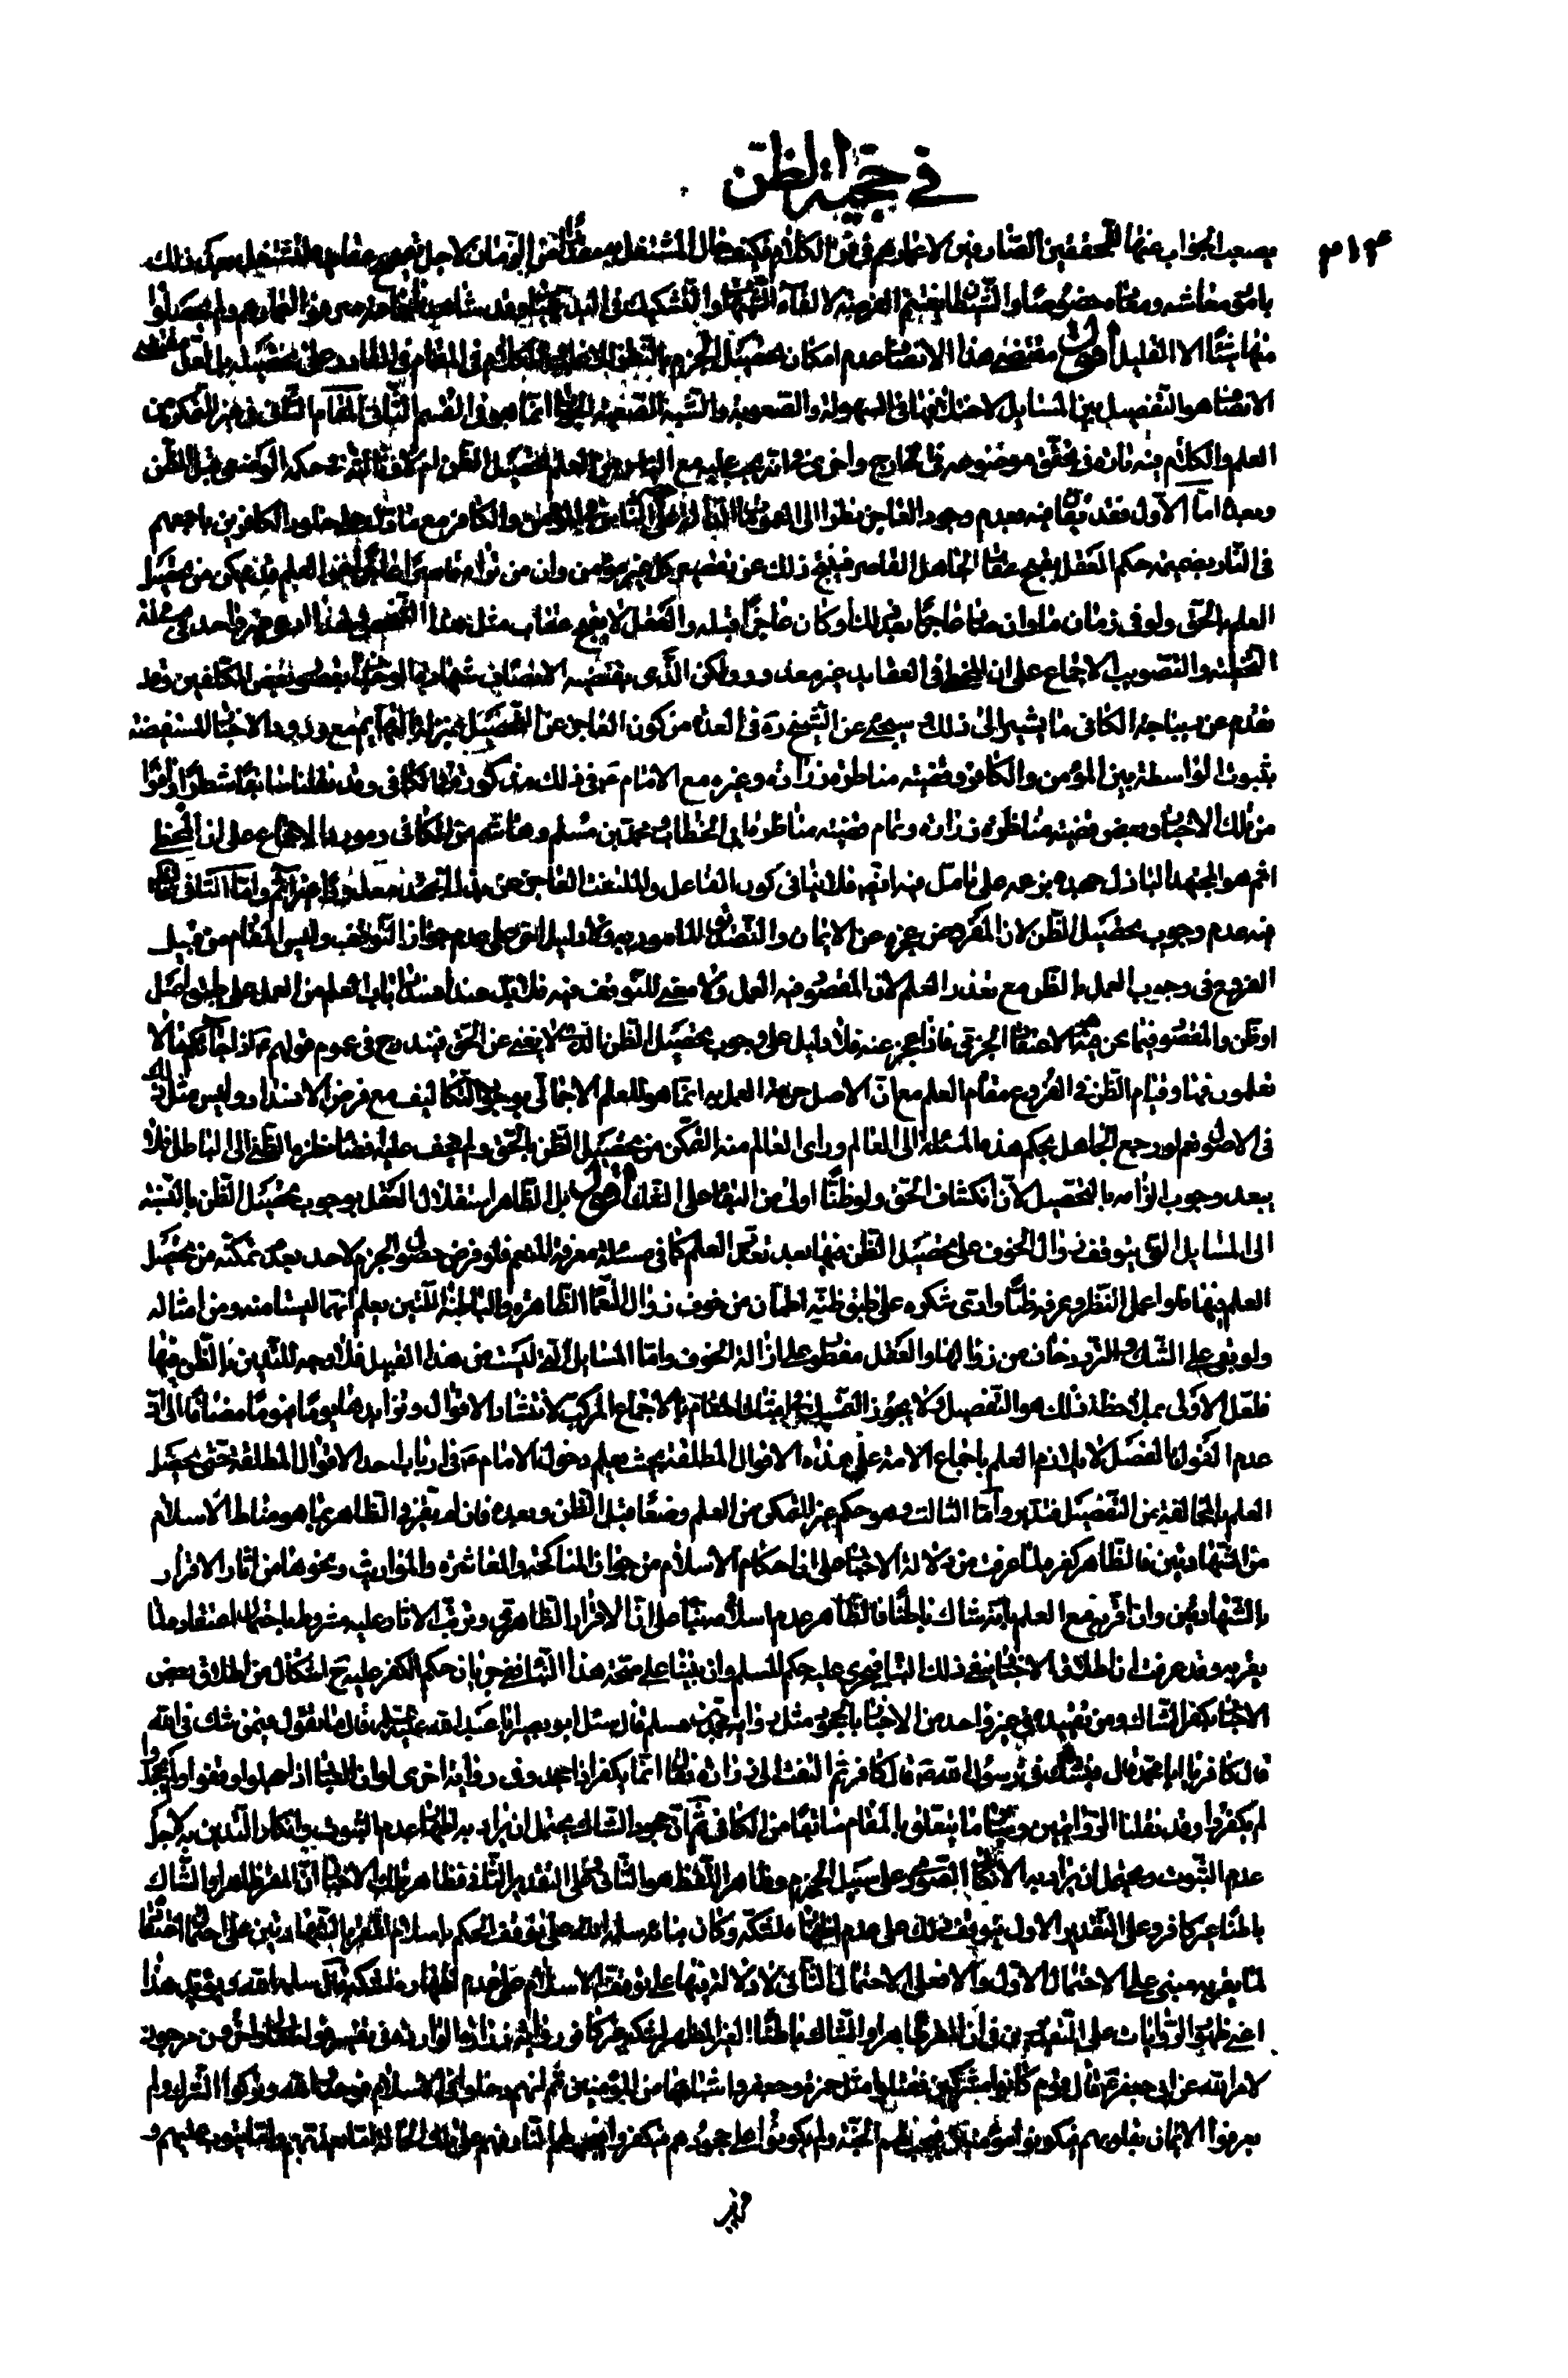 في حجية الظن
٣١٣
يصعب الجواب عنها للمحققين الصارفين لاعمارهم في فن الكلام فكيف حال المشتغل به مقدارا من الزمان لاجل تصحيح عقايده ليشتغل بعد ذلك
بامور معاشه ومعاده خصوصا والشيطان يغتنم الفرصة لالقاء الشبهات والتشكيك في البديهيات وقد شاهدنا جماعة صرفوا اعمارهم ولم يحصلوا
منها شيئا الا القليل اقول مقتضى هذا الانصاف عدم امكان تحصيل الجزم بالنظر الكلام في المقام في القادر على تحصيله بل لعل مقتضى
الانصاف هو التفصيل بين المسايل لاختلافها في السهولة والصعوبة والشبه الصعبة الجواب انما هو في القسم الثاني المقام الثاني في غير المتمكن من
العلم والكلام فيه تارة في تحقق موضوعه في الخارج واخرى في انه يجب عليه مع الياس من العلم تحصيل الظن ام لا وثالثة في حكمه الوضعي قبل الظن
وبعده اما الاول فقد يقال فيه بعدم وجود العاجز نظرا الى العمومات الدالة على حصر الناس في المؤمن والكافر مع ما دل على خلود الكافرين باجمعهم
في النار بضميمة حكم العقل بقبح عقاب الجاهل القاصر فينتج ذلك عن تقصير كل غير مؤمن وان من نراه قاصرا عاجزا عن العلم قد تمكن من تحصيل
العلم بالحق ولو في زمان ما وان صار عاجزا بعد ذلك او كان عاجزا قبله والعقل لا يقبح عقاب مثل هذا الشخص ولهذا ادعى غير واحد في مسئلة
التخطئة والتصويب الاجماع على ان المخطئ في العقايد غير معذور ولكن الذي يقتضيه الانصاف شهادة الوجدان بقصور بعض المكلفين وقد
تقدم عن ديباجة الكافي ما يشير الى ذلك وسيجئ عن الشيخ ره في العدة من كون العاجز عن التحصيل بمنزلة البهايم مع ورود الاخبار المستفيضة
بثبوت الواسطة بين المؤمن والكافر وقضية مناظرة زرارة وغيره مع الامام ع في ذلك مذكورة في الكافي وقد نقلنا سابقا شطرا وافرا
من تلك الاخبار وبعض قضية مناظرة زرارة وتمام قضية مناظرة ابي الخطاب ومحمد بن مسلم وهاشم من الكافي ومورد الاجماع على ان المخطئ
اثم هو المجتهد الباذل جهده بزعمه على تامل فيه ايضا فلا ينافي كون الغافل والملتفت العاجز عن بذل الجهد معذورا غير اثم واما الثاني فالظاهر
فيه عدم وجوب تحصيل الظن لان المفروض عجزه عن الايمان والتصديق المامور به ولا دليل اخر على عدم جواز التوقف وليس المقام من قبيل
الفروع في وجوب العمل بالظن مع تعذر العلم لان المقصود فيها العمل ولا معنى للتوقف فيه فلا بد عند انسداد باب العلم من العمل على طبق اصل
او ظن والمقصود فيما نحن فيه الاعتقاد الجزمي فاذا عجز عنه فلا دليل على وجوب تحصيل الظن الذي لا يغني عن الحق فيندرج في عموم قولهم ع اذا جاءكم ما لا
تعلمون فها وقيام الظن في الفروع مقام العلم مع ان الاصل حرمة العمل به انما هو للعلم الاجمالي بوجود التكاليف مع فرض الانسداد وليس مثل ذلك
في الاصول نعم لو رجع الجاهل بحكم هذه المسئلة الى العالم وراى العالم منه التمكن من تحصيل الظن بالحق ولم يخف عليه افضاء نظره الظني الى الباطل فلا
يبعد وجوب الزامه بالتحصيل لان انكشاف الحق ولو ظنا اولى من البقاء على الشك اقول بل الظاهر استقلال العقل بوجوب تحصيل الظن بالنسبة
الى المسايل التي يتوقف زوال الخوف على تحصيل الظن فيها بعد تعذر العلم كما في مسئلة معرفة المنعم فلو فرض حصول الجزم لاحد بعدم تمكنه من تحصيل
العلم فيها فلو اعمل النظر وعرفه ظنا وادى شكره على طبق ظنه اطمأن من خوف زوال النعماء الظاهرة والباطنة اللتين يعلم انهما ليستا منه ومن امثاله
ولو بقي على الشك والتردد خاف من زوالها والعقل مفطور على ازالة الخوف واما المسايل التي ليست من هذا القبيل فلا وجه للتدين بالظن فيها
فلعل الاولى بملاحظة ذلك هو التفصيل ولا يجوز التمسك في امثال المقام بالاجماع المركب لانتشار الاقوال وتزايدها يوما فيوما مضافا الى ان
عدم القول بالفصل لا يلازم العلم باجماع الامة على هذه الاقوال المطلقة بحيث يعلم دخول الامام ع في ارباب احد الاقوال المطلقة حتى يحصل
العلم بالمخالفة عن التفصيل فتدبر واما الثالث وهو حكم غير المتمكن من العلم وضعا قبل الظن وبعده فان لم يقر في الظاهر بما هو مناط الاسلام
من الشهادتين فالظاهر كفره لما عرفت من دلالة الاخبار على ان احكام الاسلام من جواز المناكحة والمعاشرة والمواريث ونحوها من اثار الاقرار
بالشهادتين وان اقر به مع العلم بانه شاك باطنا فالظاهر عدم اسلامه بناء على ان الاقرار الظاهري وترتب الاثار عليه مشروط باحتمال اعتقاده لما
يقر به وقد عرفت ان اطلاق الاخبار ينفي ذلك البناء فيجري عليه حكم المسلم وان بنينا على صحة هذا البناء ففي جريان حكم الكفر عليه ح اشكال من اطلاق بعض
الاخبار بكفر الشاك ومن تقييده في غير واحد من الاخبار بالجحود مثل رواية محمد بن مسلم قال سئل ابو بصير ابا عبد الله ع قال ما تقول فيمن شك في الله
قال كافر يا ابا محمد قال فشك في رسول الله ص قال كافر ثم التفت الى زرارة فقال انما يكفر اذا جحد وفي رواية اخرى لو ان العباد اذ جهلوا وقفوا ولم يجحدوا
لم يكفروا وقد نقلنا الروايتين وبينا ما يتعلق بالمقام سابقا من الكافي ثم ان جحود الشاك يحتمل ان يراد به اظهار عدم الثبوت وانكار التدين به لاجل
عدم الثبوت ويحتمل ان يراد به الانكار الصوري على سبيل الجزم وظاهر اللفظ هو الثاني وعلى التقديرين فظاهر تلك الاخبار ان المقر ظاهرا والشاك
باطنا غير كافر وعلى التقدير الاول يتوقف ذلك على عدم اظهاره لشكه وكان بناؤه سلمه الله على توقف الحكم باسلام المقر بالشهادتين على احتمال اعتقاده
لما يقر به مبني على الاحتمال الاول والا فعلى الاحتمال الثاني لا دلالة فيها على توقف الاسلام على عدم اظهاره لشكه قال سلمه الله ويؤيد هذا
اعني ظهور الروايات على التقديرين في ان المقر ظاهرا والشاك باطنا الغير المظهر لشكه غير كافر رواية زرارة الواردة في تفسير قوله تعالى واخرون مرجون
لامر الله عن ابي جعفر ع قال قوم كانوا مشركين فقتلوا مثل حمزة وجعفر واشباههما من المؤمنين ثم انهم دخلوا في الاسلام فوحدوا الله وتركوا الشرك ولم
يعرفوا الايمان بقلوبهم فيكونوا مؤمنين فيجب لهم الجنة ولم يكونوا على جحودهم فيكفروا فيجب لهم النار فهم على تلك الحالة اما يعذبهم واما يتوب عليهم و